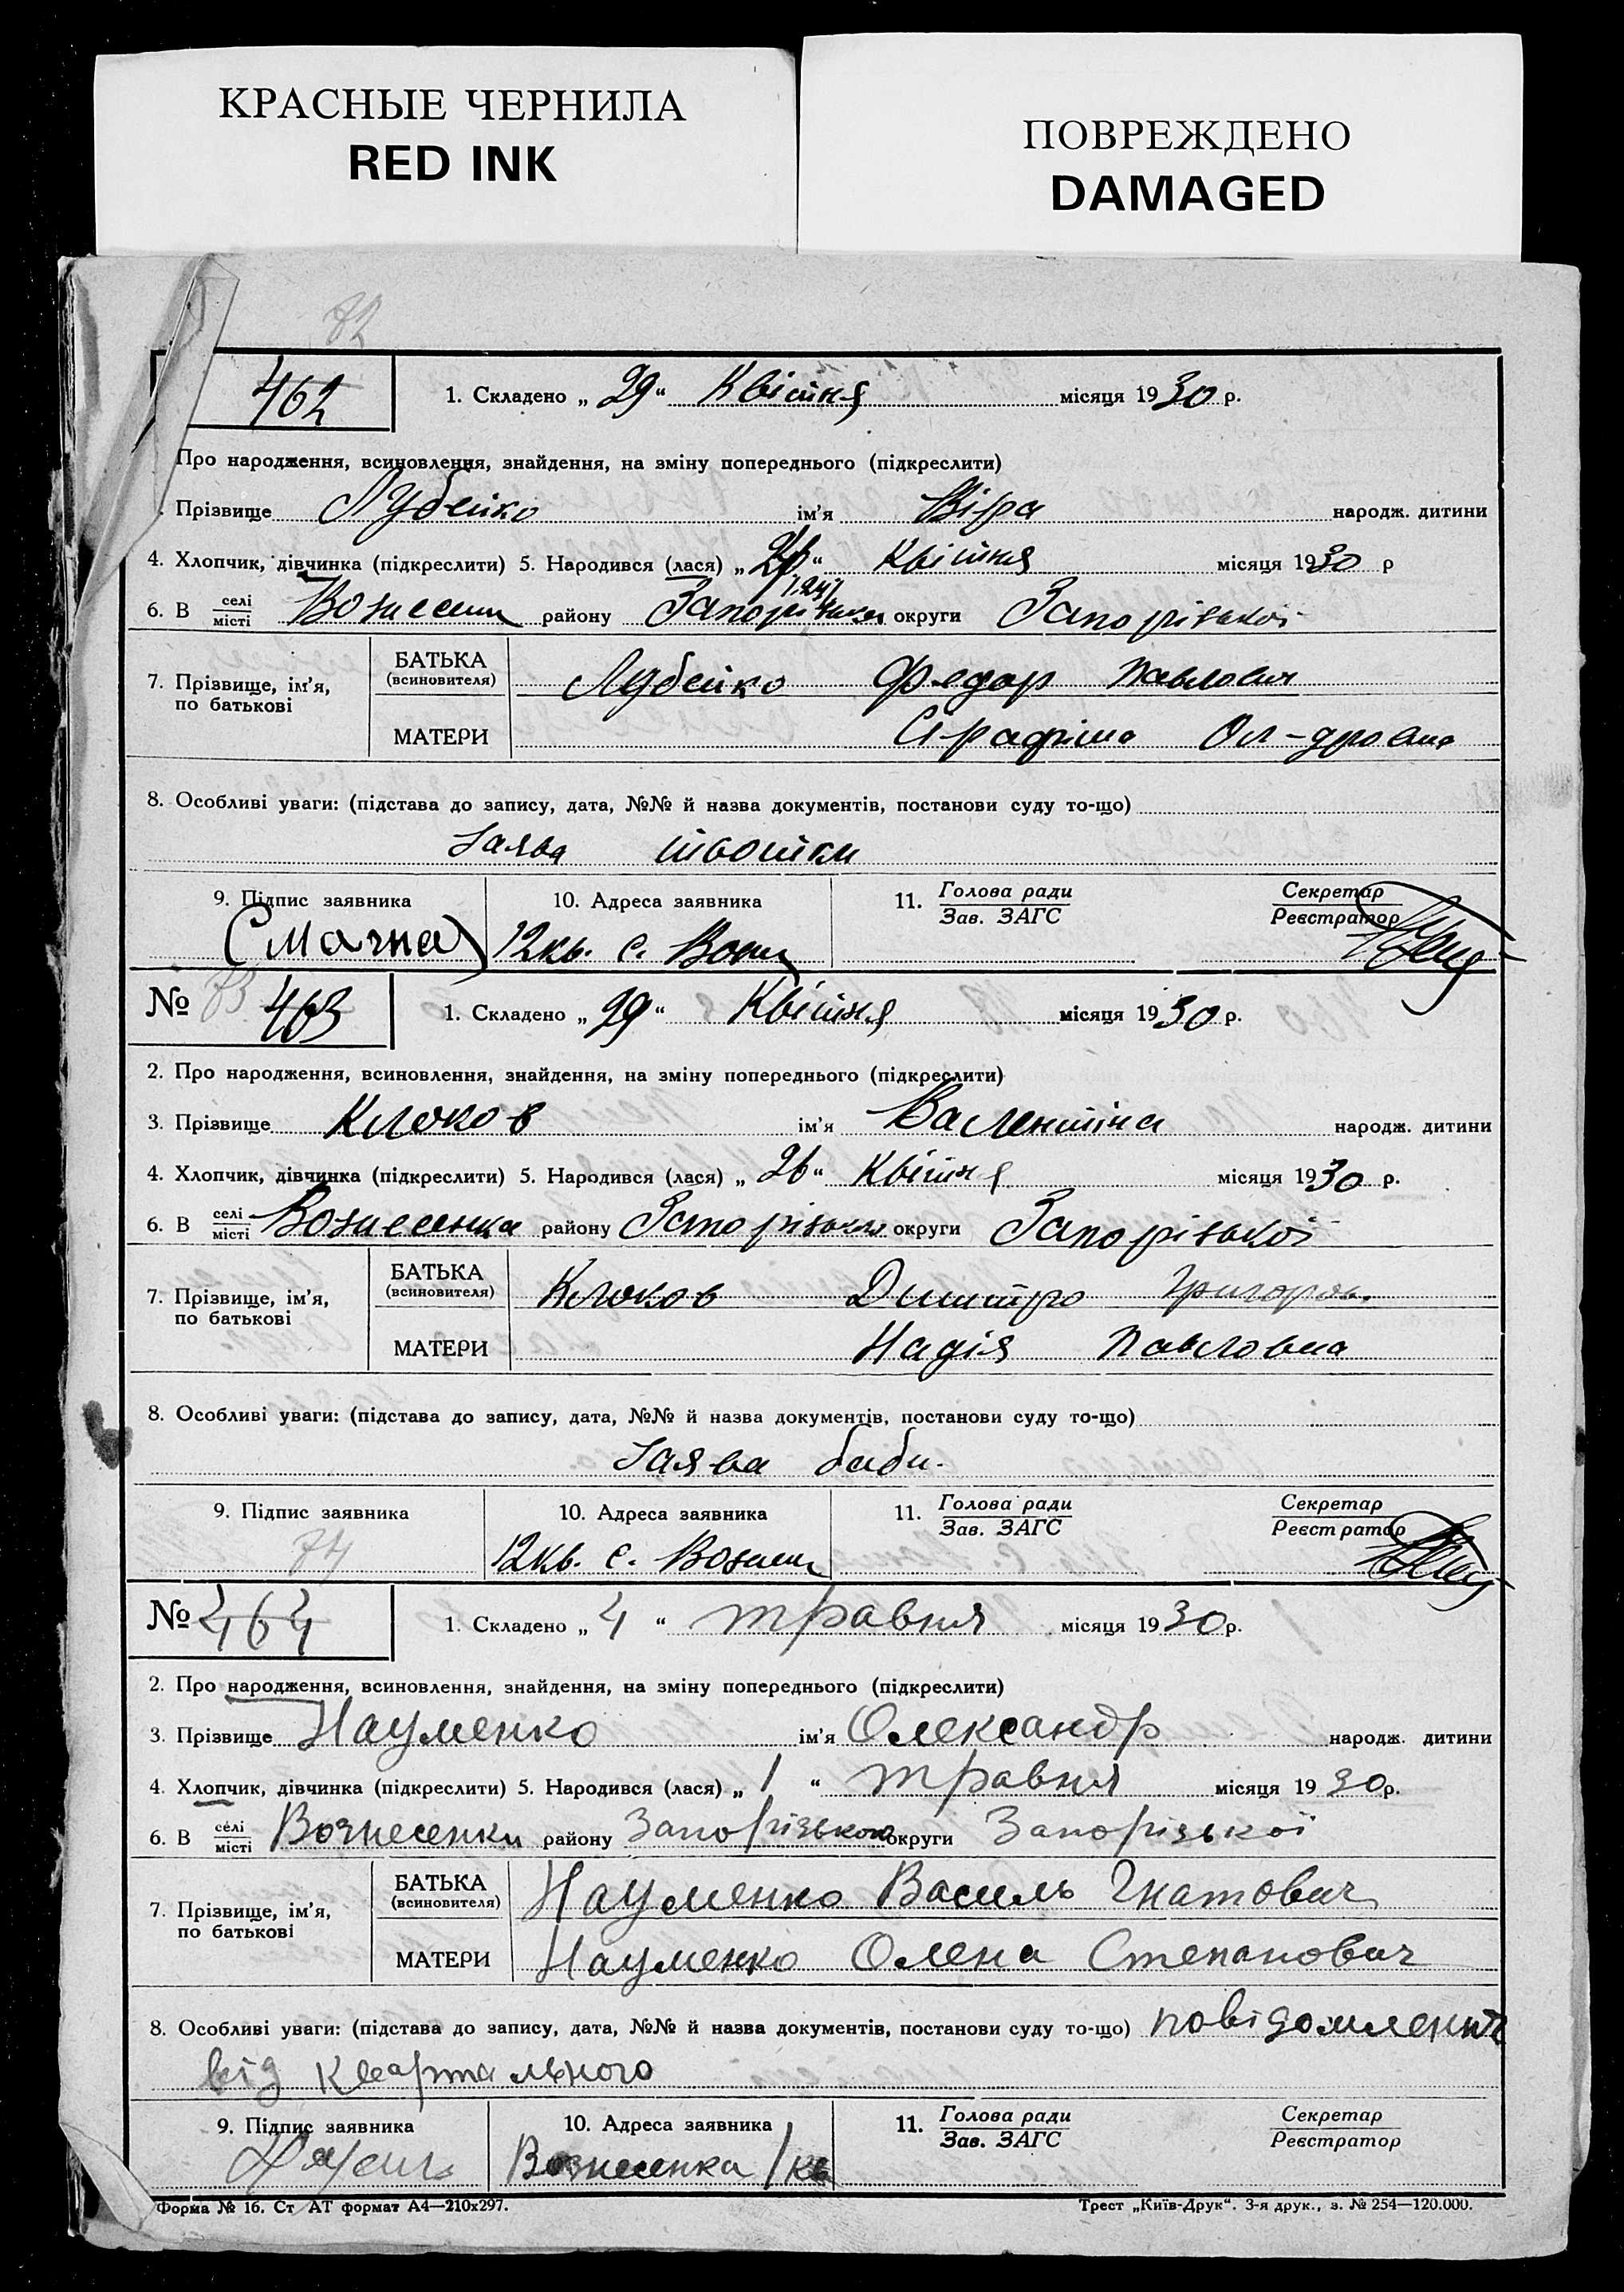 КРАСНЫЕ ЧЕРНИЛА
RED INK
ПОВРЕЖДЕНО
DAMAGED
72
462
1. Складено „ 29 “ Квітня місяця 1930 р.
Про народження, всиновлення, знайдення, на зміну попереднього (підкреслити)
Прізвище Лубенко ім’я Віра народж. дитини
4. Хлопчик, дівчинка (підкреслити) 5. Народився (лася) „ “ Квітня місяця 1930 р
6. В селі місті Вознесенки району Запорізьког округи Запорізької
7. Прізвище, ім’я, по батькові
БАТЬКА (всиновителя) Лубенко Федор Павлович
МАТЕРИ
8. Особливі уваги: (підстава до запису, дата, №№ й назва документів, постанови суду то-що)
Заява тьотки
9. Підпис заявника 10. Адреса заявника 11. Голова ради Зав. ЗАГС Секретар Реєстратор
Смачна 12кв. с. Возн
№ 73 463 1. Складено „ 29 “ Квітня місяця 1930 р.
2. Про народження, всиновлення, знайдення, на зміну попереднього (підкреслити)
3. Прізвище Клоков ім’я Валентіна народж. дитини
4. Хлопчик, дівчинка (підкреслити) 5. Народився (лася) „ 26 “ Квітня місяця 1930 р.
6. В селі місті Вознесенка району Запорізьког округи Запорізької
7. Прізвище, ім’я, по батькові
БАТЬКА (всиновителя) Клоков Дмитро Григоров.
МАТЕРИ Надія Павловна
8. Особливі уваги: (підстава до запису, дата, №№ й назва документів, постанови суду то-що)
Заява баби.
9. Підпис заявника 10. Адреса заявника 11. Голова ради Зав. ЗАГС Секретар Реєстратор
74 12кв. с. Вознесен
№ 464 1. Складено „ 4 “ травня місяця 1930 р.
2. Про народження, всиновлення, знайдення, на зміну попереднього (підкреслити)
3. Прізвище Науменко ім’я Олександр народж. дитини
4. Хлопчик, дівчинка (підкреслити) 5. Народився (лася) „ 1 “ травня місяця 1930 р.
6. В селі місті Вознесенки району Запорізького округи Запорізької
7. Прізвище, ім’я, по батькові
БАТЬКА (всиновителя) Науменко Василь Гнатович
МАТЕРИ Науменко Олена Степанович
8. Особливі уваги: (підстава до запису, дата, №№ й назва документів, постанови суду то-що) повідомлення
від квартального
9. Підпис заявника 10. Адреса заявника 11. Голова ради Зав. ЗАГС Секретар Реєстратор
Вознесенка 1 кв
Форма № 16. Ст АТ формат А4—210х297. Трест „Київ-Друк“. 3-я друк., з. № 254—120.000.